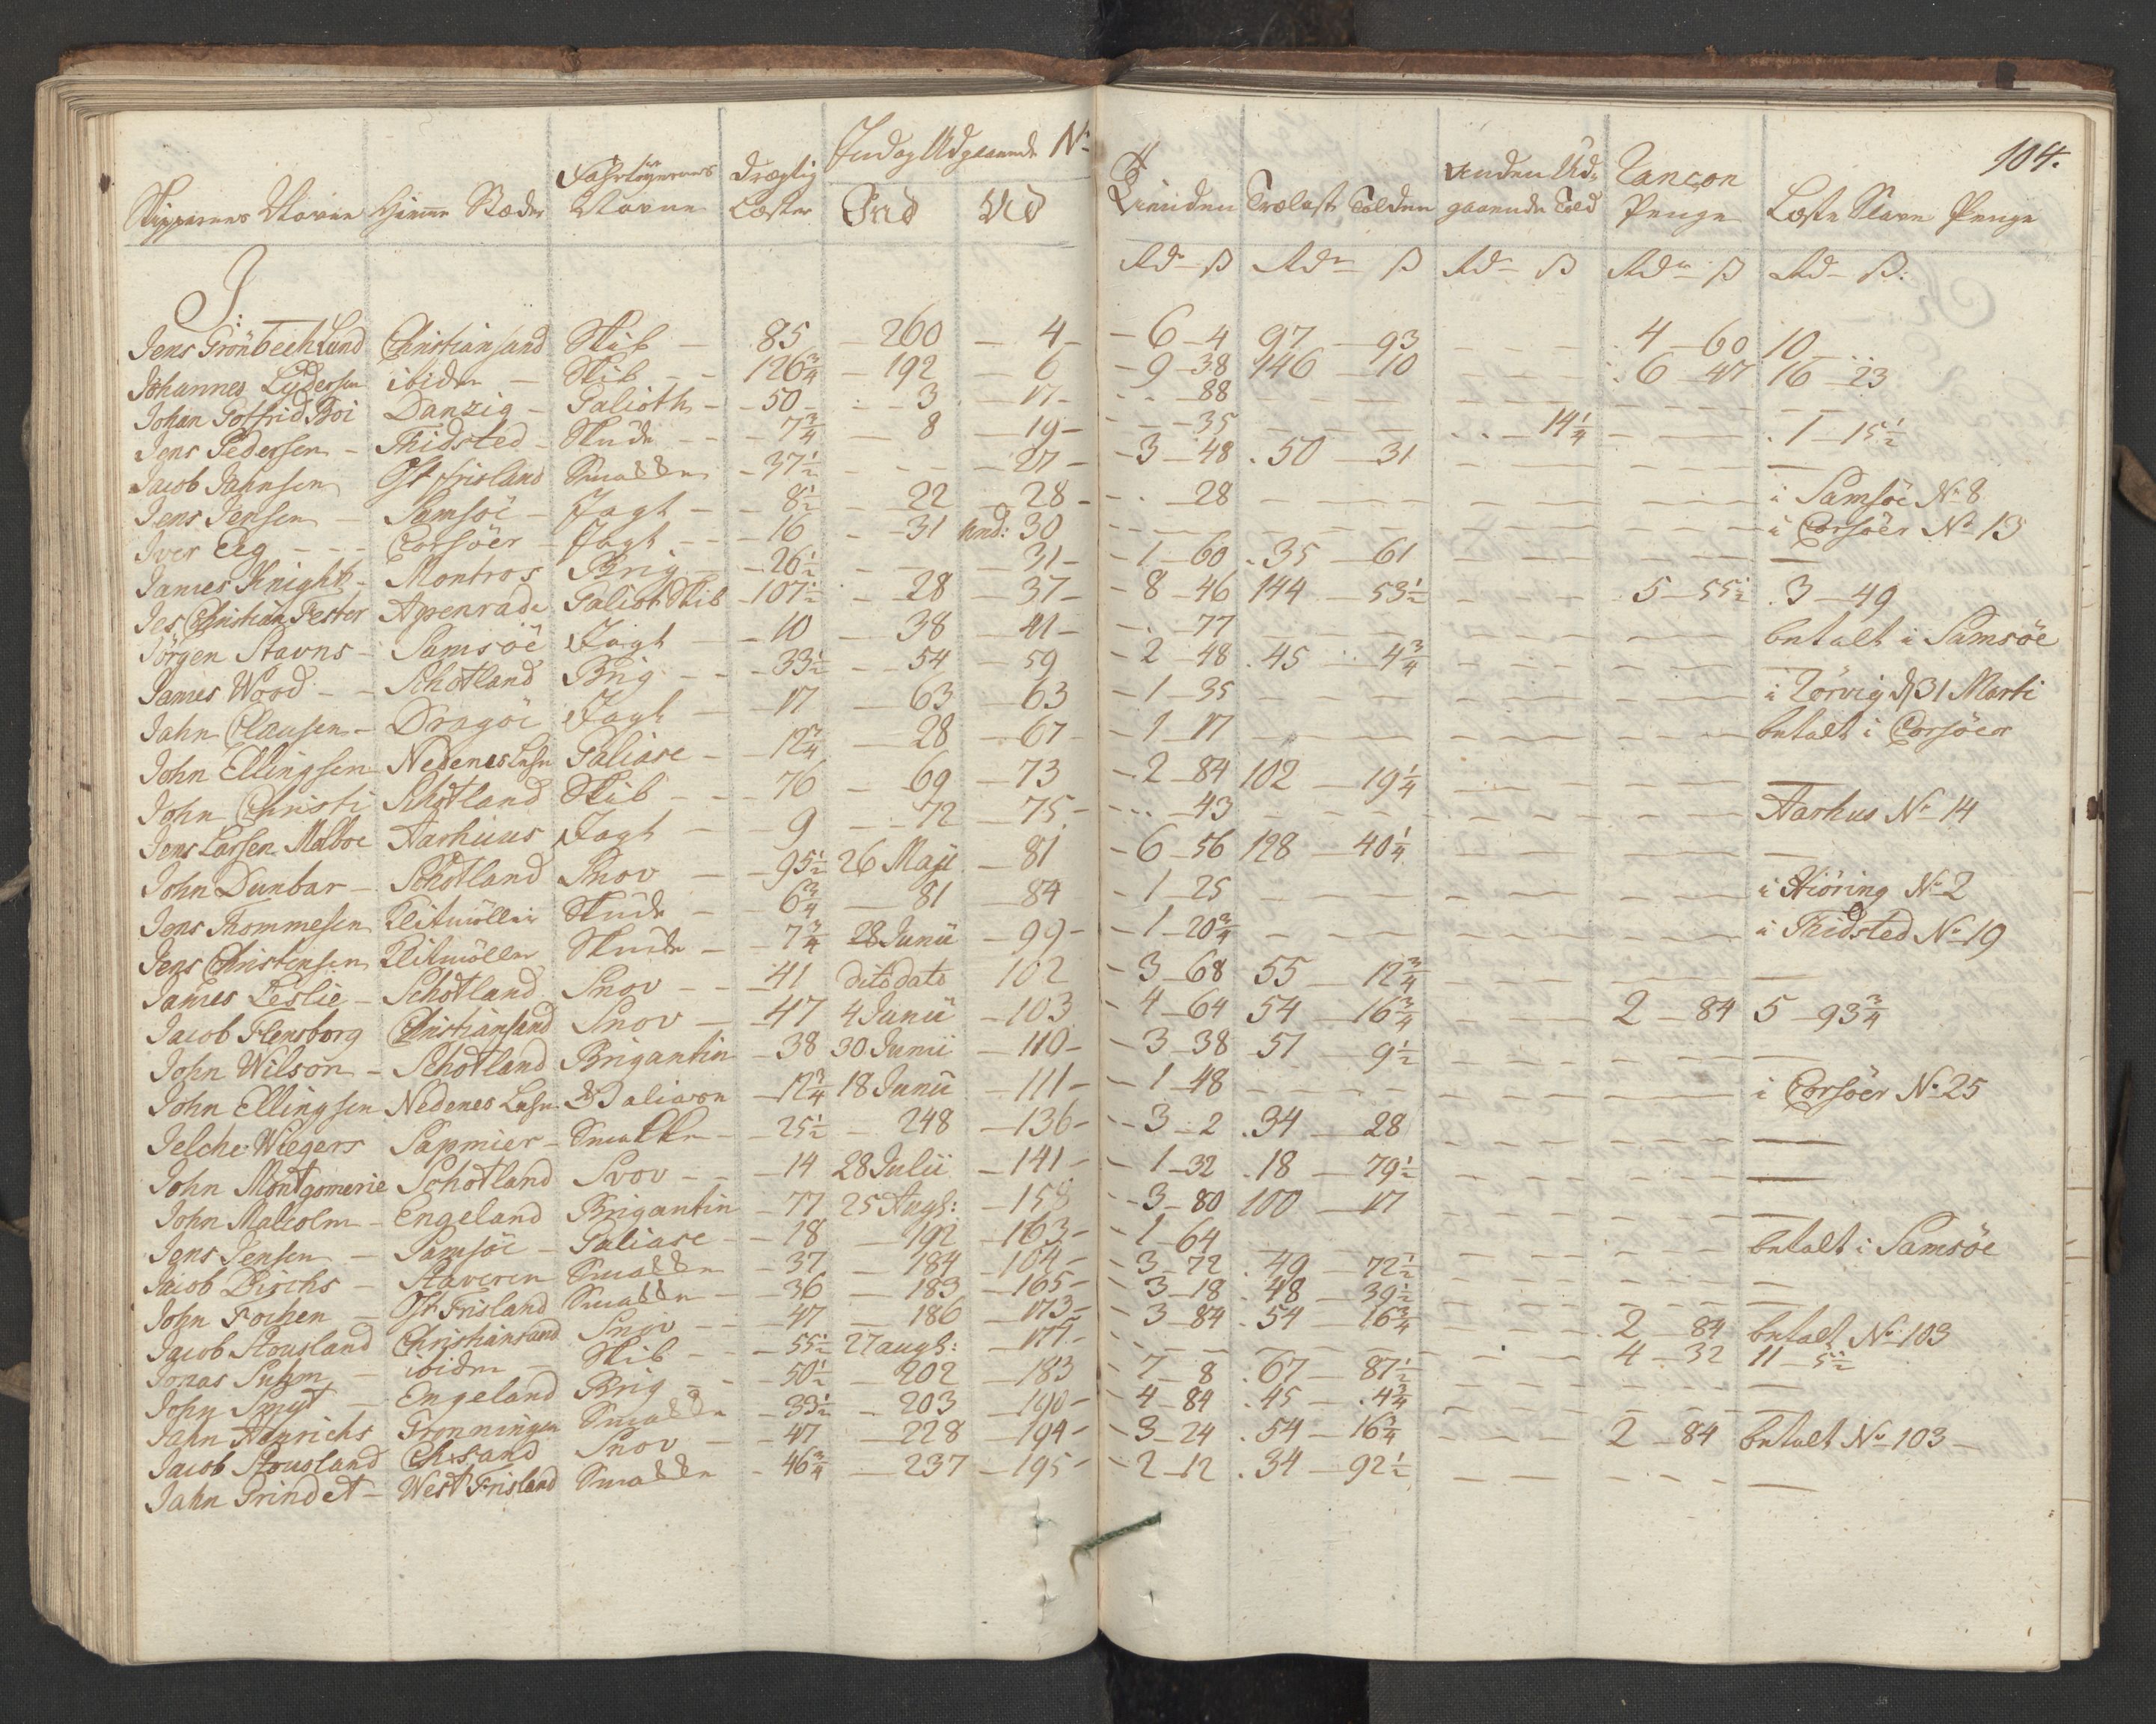 104.
Skippernes Navne Hiemme Stæder Fahrtöyernes Navne Drægtig Læster Ind og Udgaaende No
Ind Ud
Tienden Trælast Tolden Anden Udgaaende Told Rançon Penge Læste Slave Penge
Rdr ß Rdr ß Rdr ß Rdr ß Rdr ß:
J:
Jens Grönbech Lund Christiansand Skib 85 260 4 6 4 97 93 4 60 10
Johannes Lydersen ibidem Skib 126¾ 192 6 9 38 146 10 6 47 16 23
Johan Gotfrid Boi Danzig Galioth 50 3 17 88
Jens Pedersen Thidsted Skude 7¾ 8 19 35 14¼ 1 15½
Jacob Jahnsen Ost Frisland Smakke 37½ 27 3 48 50 31
Jens Jensen Samsöe Jagt 8½ 22 28 28 i Samsöe No 8
Iver Eeg Corsöer Jagt 16 31 And: 30 i Corsöer No 13
James Knight Montros Brig 26½ 31 1 60 35 61
Jes Christian Fester Apenrade Galiot Skib 107½ 28 37 8 46 144 53½ 5 55½ 3 49
Jörgen Stavns Samsöe Jagt 10 38 41 77 betalt i Samsöe
James Wood Schotland Brig 33½ 54 59 2 48 45 4¾
Jahn Clausen Dragöe Jagt 17 63 63 1 35 i Rörvig d 31 Marti
John Ellingsen Nedenes Lehn Galiase 12¾ 28 67 1 17 betalt i Corsöer
John Christi Schotland Skib 76 69 73 2 84 102 19¼
Jens Larsen Malboe Aarhuus Jagt 9 72 75 43 Aarhus No 14
John Dunbar Schotland Snov 95½ 26 Maji 81 6 56 128 40¼
Jens Thommesen Klitmöller Skude 6¾ 81 84 1 25 i Hiöring No 2
Jens Christensen Klitmöller Skude 7¾ 28 Junii 99 1 20¾ i Thidsted No 19
James Leslie Schotland Snov 41 dito dato 102 3 68 55 12¾
Jacob Flensborg Christiansand Snov 47 4 Junii 103 4 64 54 16¾ 2 84 5 93¾
John Wilson Schotland Brigantin 38 30 Junii 110 3 38 51 9½
John Ellingsen Nedenes Lehn Galiasen 12¾ 18 Junii 111 1 48 i Corsöer No 25
Jelche Wiegers Sapmier Smakke 25½ 248 136 3 2 34 28
John Montgomerie Schotland Svov 14 28 Julii 141 1 32 18 79½
John Malcolm Engeland Brigantin 77 25 Augs: 158 3 80 100 17
Jens Jensen Samsöe Galiase 18 192 163 1 64 betalt i Samsöe
Jacob Dirchs Staveren Smakke 37 184 164 3 72 49 72½
John Fochen Ost Frisland Smakke 36 183 165 3 18 48 39½
Jacob Stousland Christiansand Snov 47 186 173 3 84 54 16¾ 2 84 betalt No 103
Jonas Suhm ibidem Skib 55½ 27 augs: 177 4 32 11 5½
John Smyt Engeland Brig 50½ 202 183 7 8 67 87½
Jahn Henrichs Gronningen Smakke 33½ 203 190 4 84 45 4¾
Jacob Stousland Chr.sand Snov 47 228 194 3 24 54 16¾ 2 84 betalt No 103
Jahn Grindet West Frisland Smakke 46¾ 237 195 2 12 34 92½